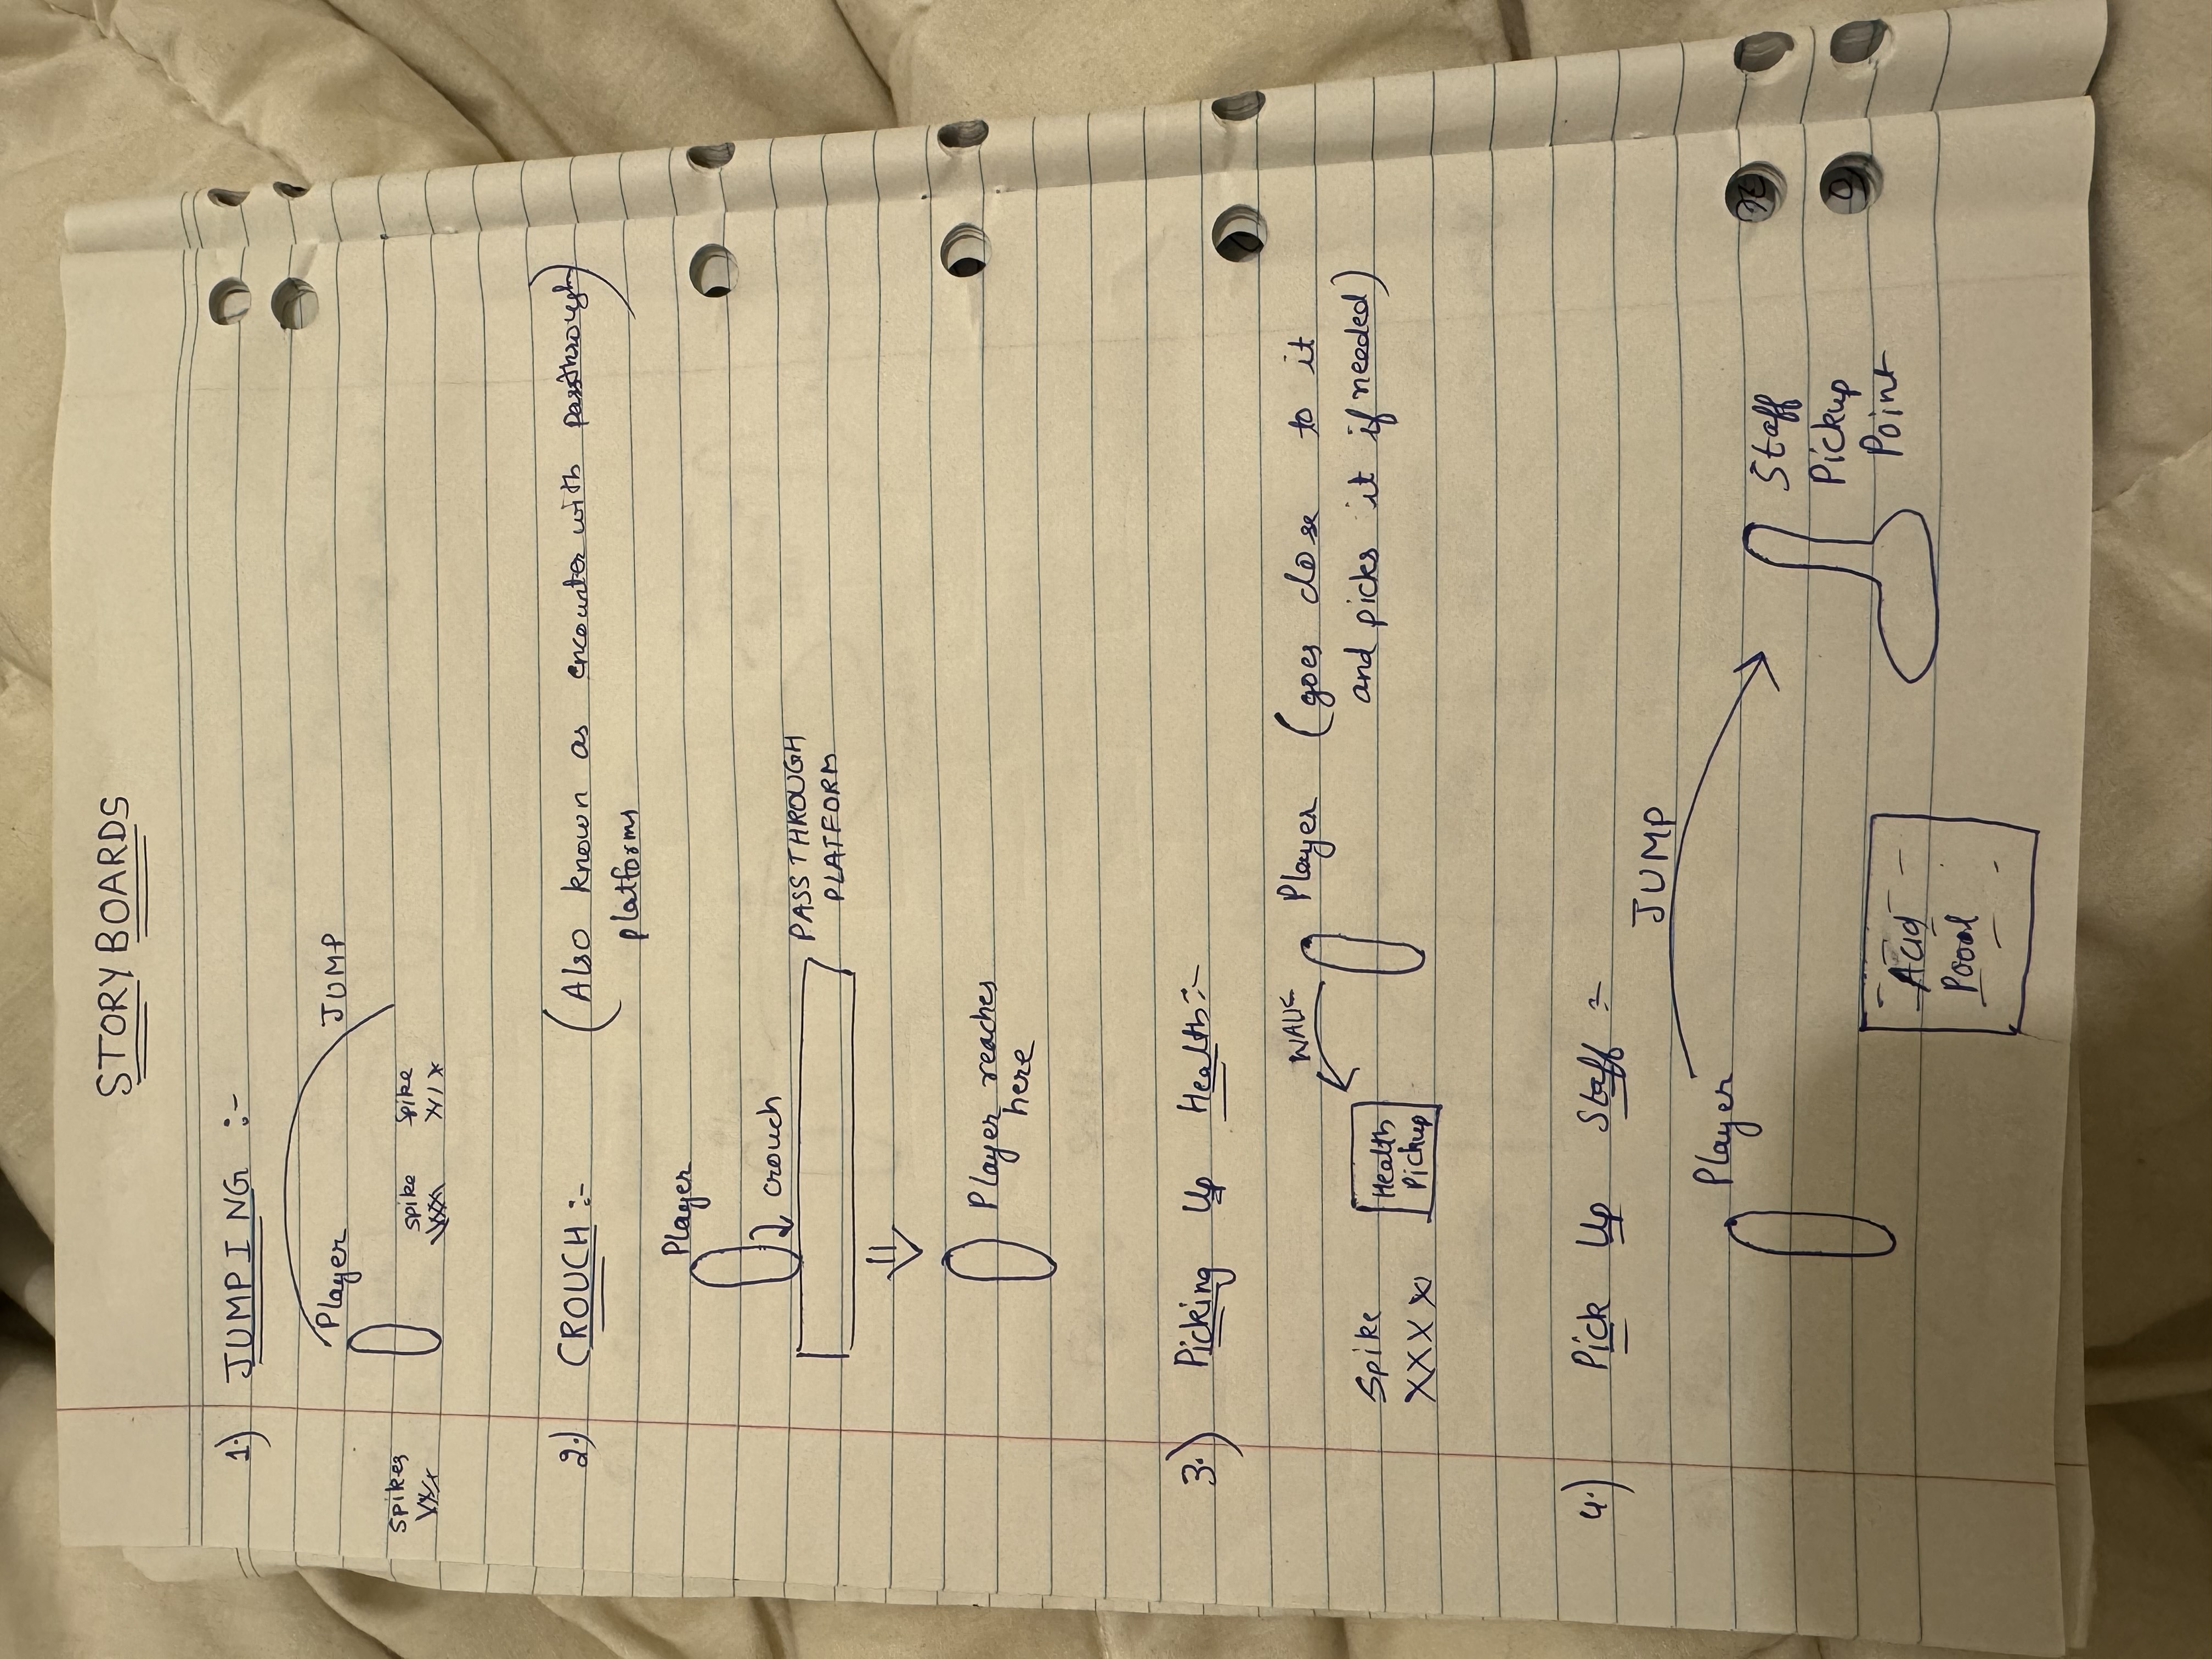 STORY BOARDS
1.) JUMPING :-
Player
JUMP
Spikes
Spike
Spike
2.) CROUCH :- (Also known as encounter with passthrough
platforms)
Player
crouch
PASS THROUGH
PLATFORM
Player reaches
here
3.) Picking Up Health :-
WALK
Player (goes close to it
and picks it if needed)
Spike
Health
Pickup
4.) Pick Up Staff :-
JUMP
Player
Staff
Pickup
Point
Acid
Poool